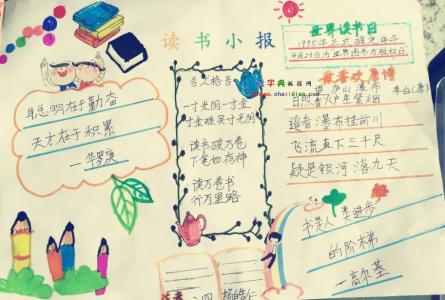 读书小报
聪明在于勤奋
天才在于积累
—华罗庚
名人格言
一寸光阴一寸金
寸金难买寸光阴
读书破万卷
下笔如有神
读万卷书
行万里路
世界读书日
1995年正式确定每年
4月23日为世界图书与版权日
我喜欢唐诗
望庐山瀑布
李白(唐)
日照香炉生紫烟
遥看瀑布挂前川
飞流直下三千尺
疑是银河落九天
书是人类进步
的阶梯
—高尔基